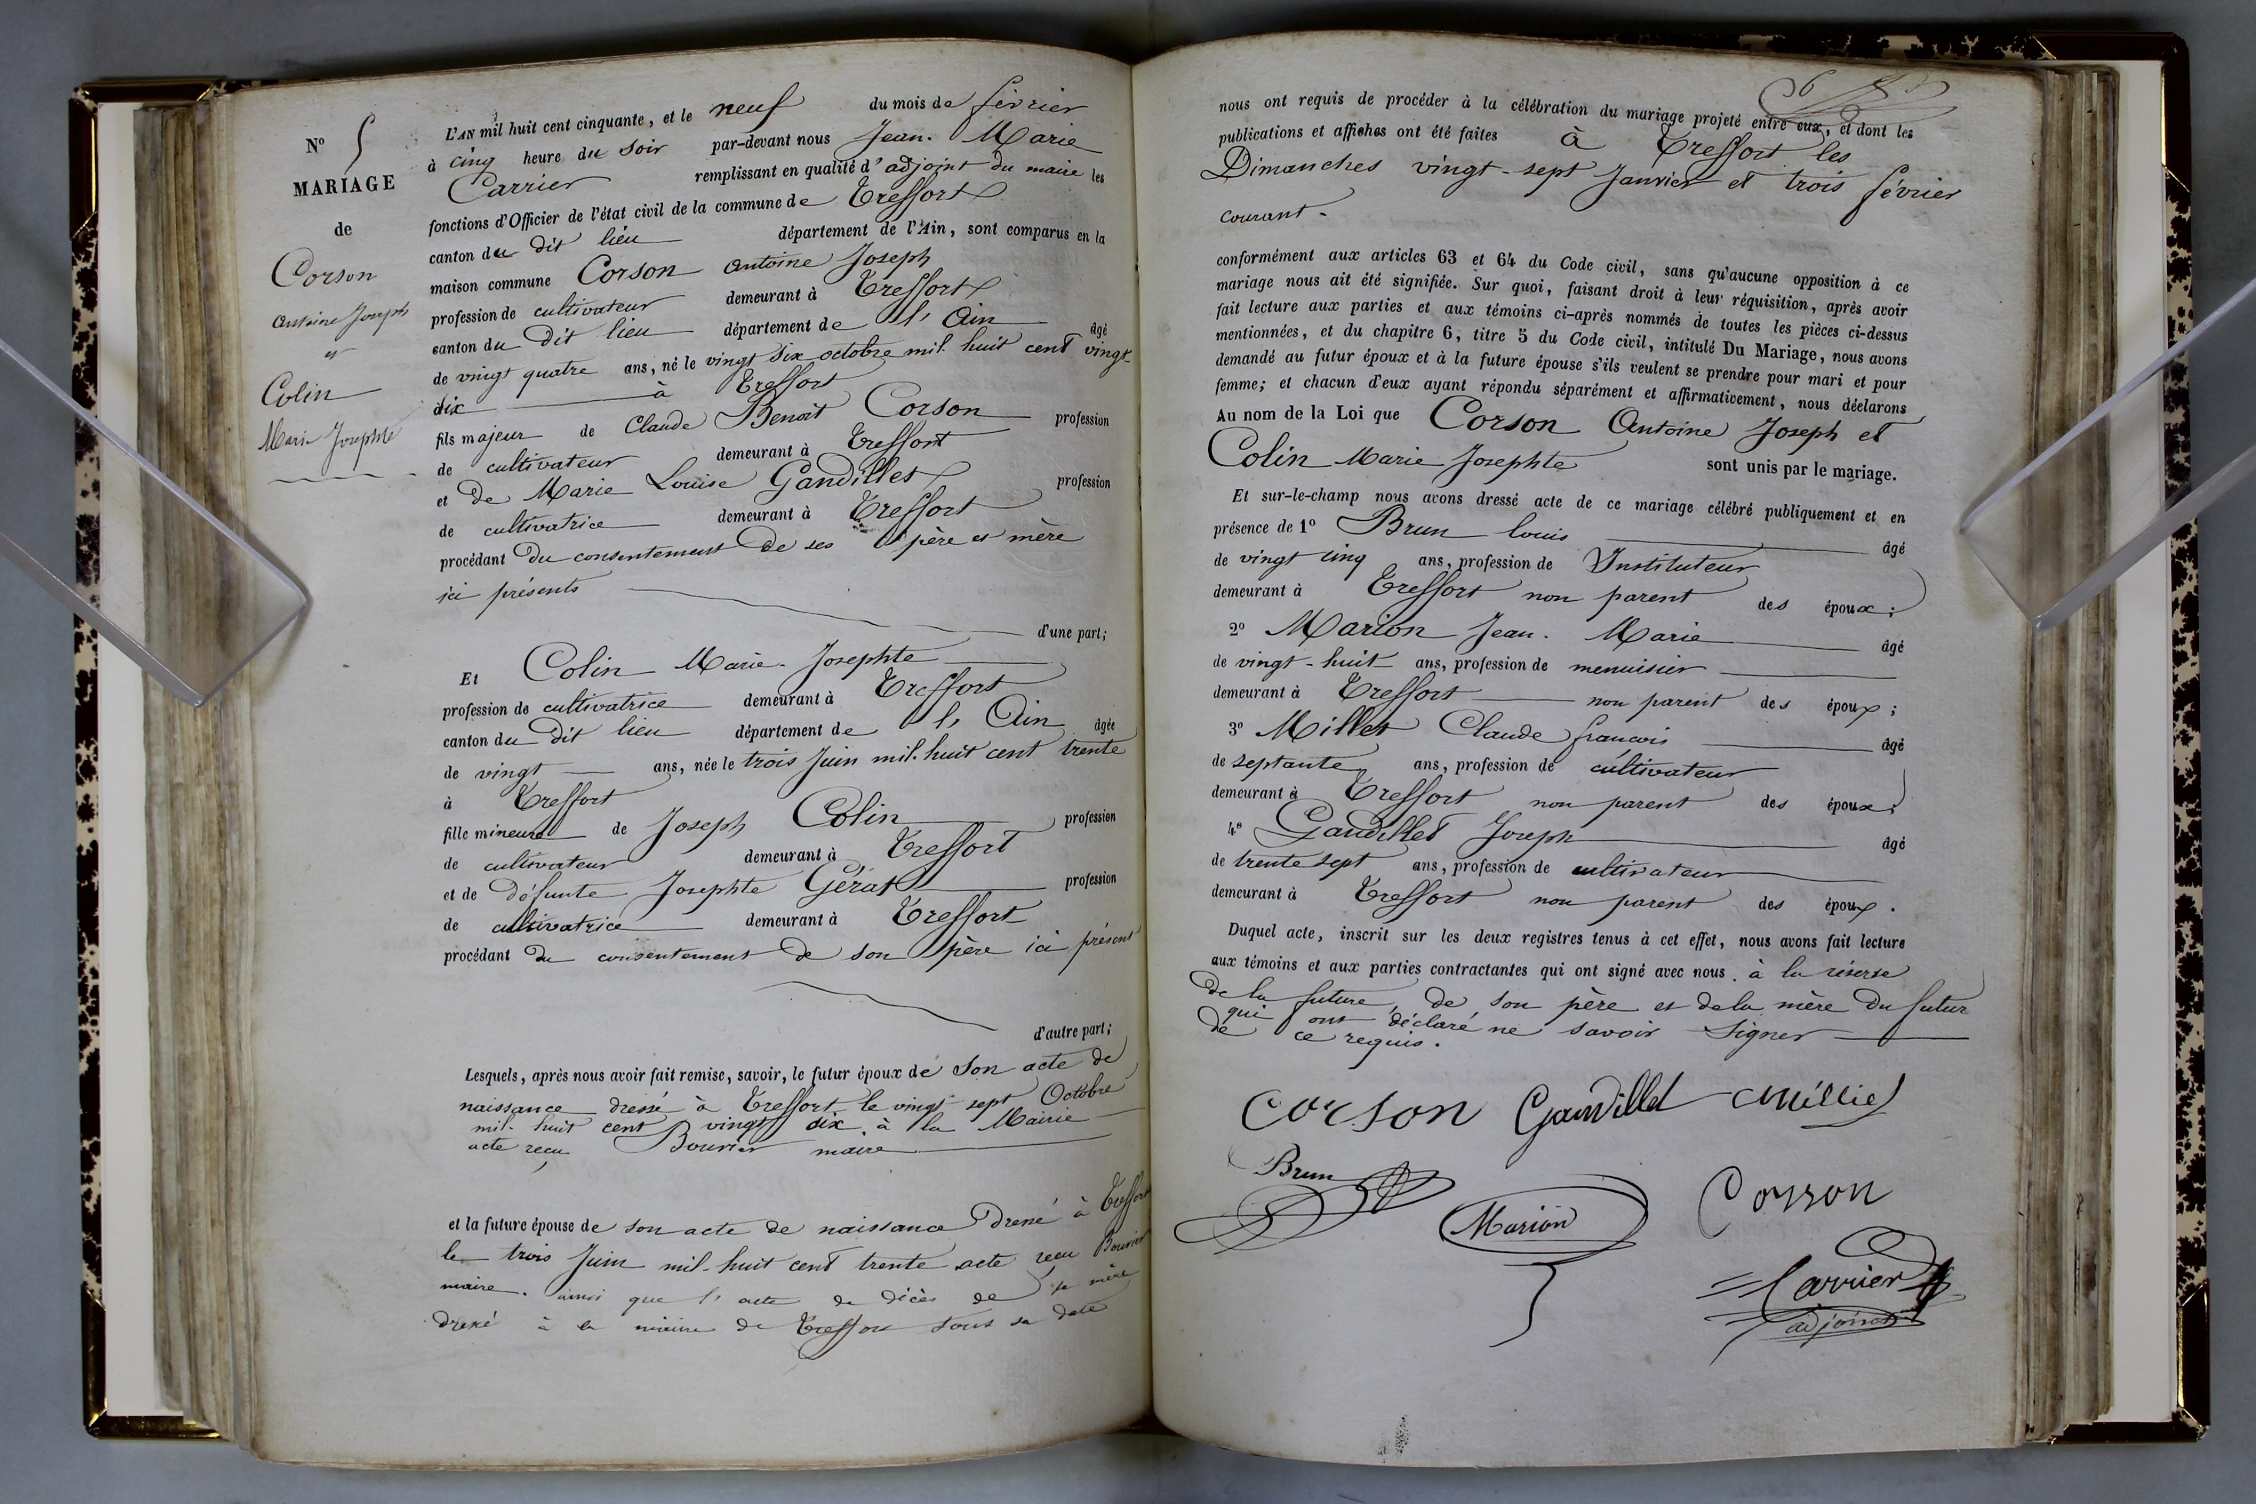 Nº 5
MARIAGE
de
Corson
Antoine Joseph
et
Colin
Marie Josephte
L'AN mil huit cent cinquante, et le neuf du mois de février
à cinq heure du soir par-devant nous Jean-Marie
Carrier remplissant en qualité d'adjoint du maire les
fonctions d'Officier de l'état civil de la commune de Treffort
canton du dit lieu département de l'Ain, sont comparus en la
maison commune Corson Antoine Joseph
profession de cultivateur demeurant à Treffort
canton du dit lieu département de l'Ain âgé
de vingt quatre ans, né le vingt six octobre mil huit cent vingt-
dix à Treffort
fils majeur de Claude Benoit Corson profession
de cultivateur demeurant à Treffort
et de Marie Louise Gandillet profession
de cultivatrice demeurant à Treffort
procédant du consentement de ses père et mère
ici présents
d'une part;
Et Colin Marie-Josephte
profession de cultivatrice demeurant à Treffort
canton du dit lieu département de l'Ain âgée
de vingt ans, née le trois Juin mil-huit cent trente
à Treffort
fille mineure de Joseph Colin profession
de cultivateur demeurant à Treffort
et de défunte Josephte Gérat profession
de cultivatrice demeurant à Treffort
procédant du consentement de son père ici présent
d'autre part;
Lesquels, après nous avoir fait remise, savoir, le futur époux de son acte de
naissance dressé à Treffort le vingt sept Octobre
mil-huit cent vingt dix à la Mairie
acte reçu Bouvier maire
et la future épouse de son acte de naissance dressé à Treffort
le trois Juin mil-huit cent trente acte reçu Bouvier
maire. ainsi que l'acte de décès de sa mère
dressé à la mairie de Treffort sous sa date
6
nous ont requis de procéder à la célébration du mariage projeté entre eux, et dont les
publications et affiches ont été faites à Treffort les
Dimanches vingt-sept Janvier et trois février
courant.
conformément aux articles 63 et 64 du Code civil, sans qu'aucune opposition à ce
mariage nous ait été signifiée. Sur quoi, faisant droit à leur réquisition, après avoir
fait lecture aux parties et aux témoins ci-après nommés de toutes les pièces ci-dessus
mentionnées, et du chapitre 6, titre 5 du Code civil, intitulé Du Mariage, nous avons
demandé au futur époux et à la future épouse s'ils veulent se prendre pour mari et pour
femme; et chacun d'eux ayant répondu séparément et affirmativement, nous déclarons
Au nom de la Loi que Corson Antoine Joseph et
Colin Marie Josephte sont unis par le mariage.
Et sur-le-champ nous avons dressé acte de ce mariage célébré publiquement et en
présence de 1º Brun Louis âgé
de vingt cinq ans, profession de Instituteur
demeurant à Treffort non parent des époux;
2º Marion Jean-Marie âgé
de vingt-huit ans, profession de menuisier
demeurant à Treffort non parent des époux;
3º Millet Claude françois âgé
de septante ans, profession de cultivateur
demeurant à Treffort non parent des époux;
4º Gandillet Joseph âgé
de trente sept ans, profession de cultivateur
demeurant à Treffort non parent des époux.
Duquel acte, inscrit sur les deux registres tenus à cet effet, nous avons fait lecture
aux témoins et aux parties contractantes qui ont signé avec nous à la réserve
de la future, de son père et de la mère du futur
qui ont déclaré ne savoir signer
de ce requis.
Corson Gandillet Millet
Brun Marion Corson
Carrier
adjoint